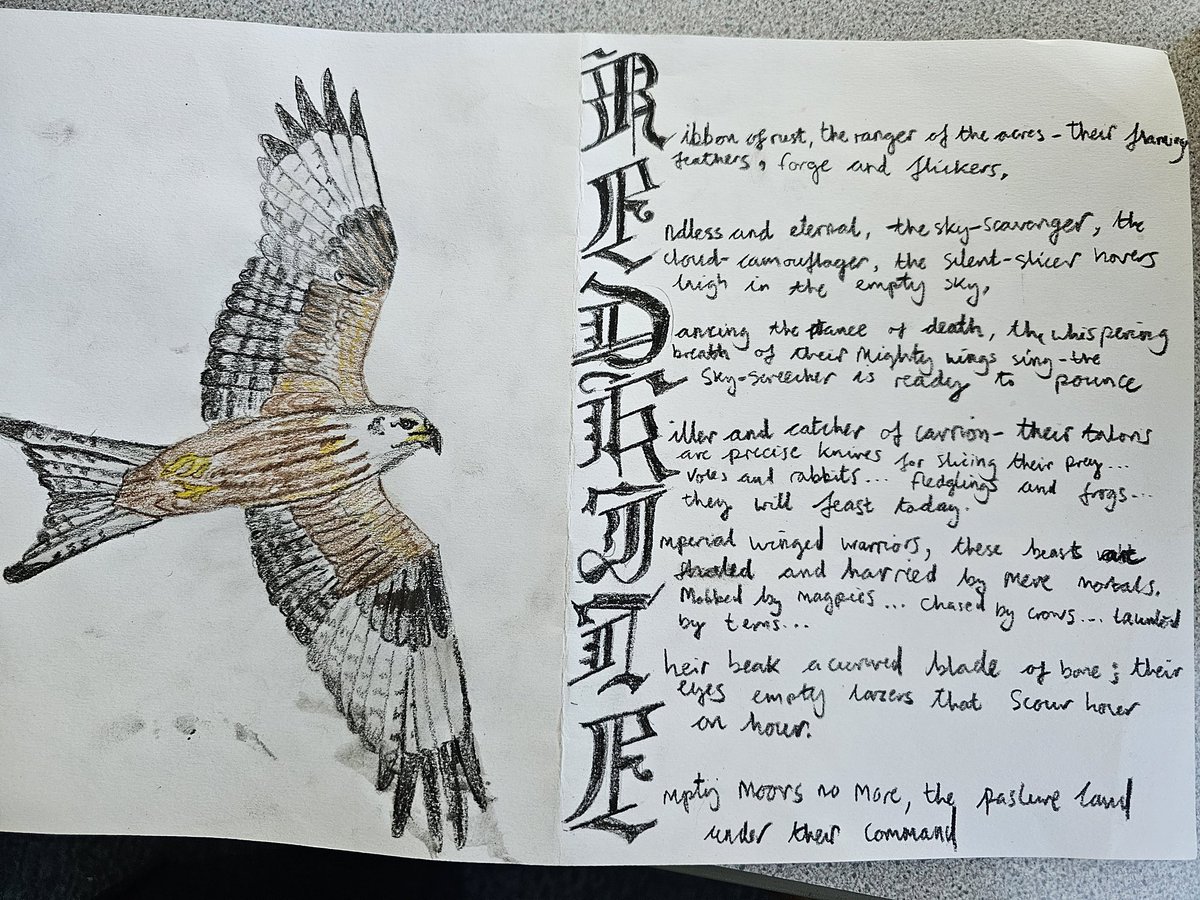 Ribbon of rust, the ranger of the acres - their framing
feathers, forge and flickers,
Endless and eternal, the sky-scavenger, the
cloud-camouflager, the silent-slicer hovers
high in the empty sky,
Dancing the dance of death, the whispering
breath of their Mighty wings sing-the
Sky-screecher is ready to pounce
Killer and catcher of carrion- their talons
are precise knives for slicing their prey...
Voles and rabbits... fledglings and frogs...
they will feast today.
Imperial winged warriors, these beasts are
and harried by mere mortals.
Mobbed by magpies... Chased by crows... taunted
by terns...
Their beak a curved blade of bone; their
eyes empty lazers that Scour hour
on hour.
Empty Moors no More, the pasture land
under their command